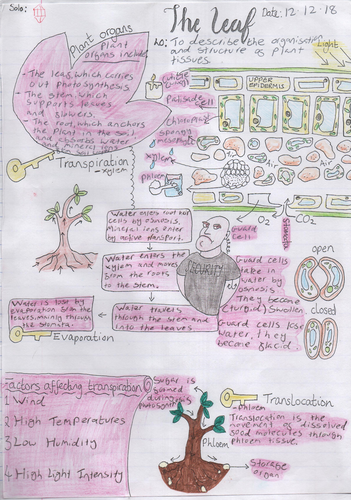 Solo:
The Leaf
Date: 12-12-18
LO: To describe the organisation
and structure of plant
tissues.
Light
Plant organs
Plant
organs include
- The leaf, which carries
out photosynthesis
- The stem, which
supports leaves
and flowers.
- The root, which anchors
the plant in the soil
and absorbs water
and mineral ions
UPPER
EPIDERMIS
Palisade
cell
spongy
mesophyll
xylem
phloem
Air
Air
Transpiration
- xylem
O2
CO2
Stomata
guard
cells
Water enters root hair
cells by osmosis.
Mineral ions enter
by active transport.
Water enters the
xylem and moves
from the roots
to the stem.
Water travels
through the stem and
into the leaves
Water is lost by
evaporation from the
leaves. Mainly through
the stomata.
Evaporation
SECURITY
Guard cells
take in
water by
osmosis
They become
(turgid) swollen
Guard cells lose
water. They
become flaccid.
open
closed
Factors affecting transpiration
1 Wind
2 High Temperatures
3 Low Humidity
4 High Light Intensity
Sugar is
gained
during
photosynthesis
Phloem
Translocation
- Phloem
Translocation is the
movement of dissolved
food molecules through
phloem tissue.
Storage
organ